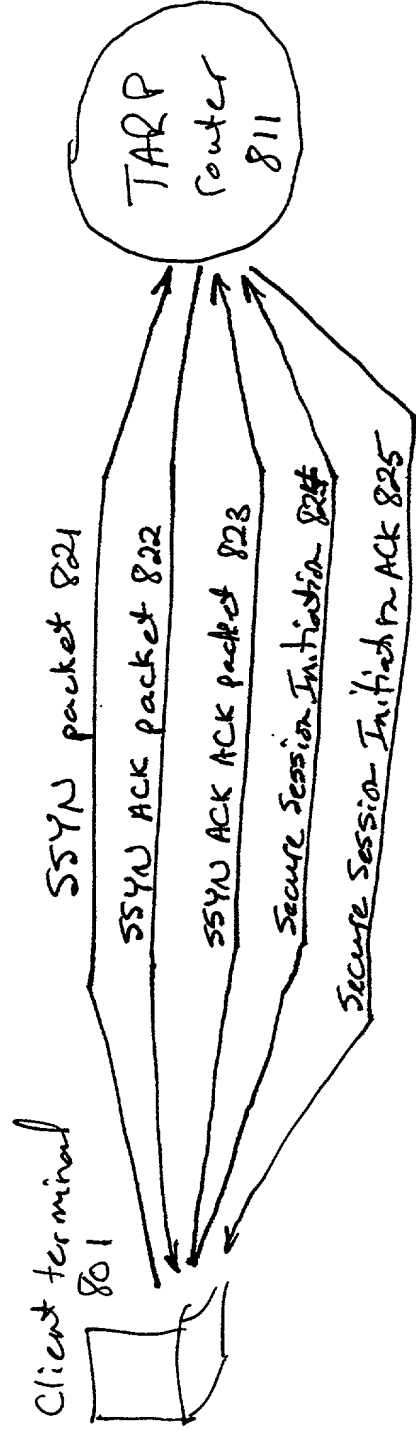 Client terminal
801
SSYN packet 821
SSYN ACK packet 822
SSYN ACK ACK packet 823
Secure Session Initiation 824
Secure Session Initiation ACK 825
TARP
router
811